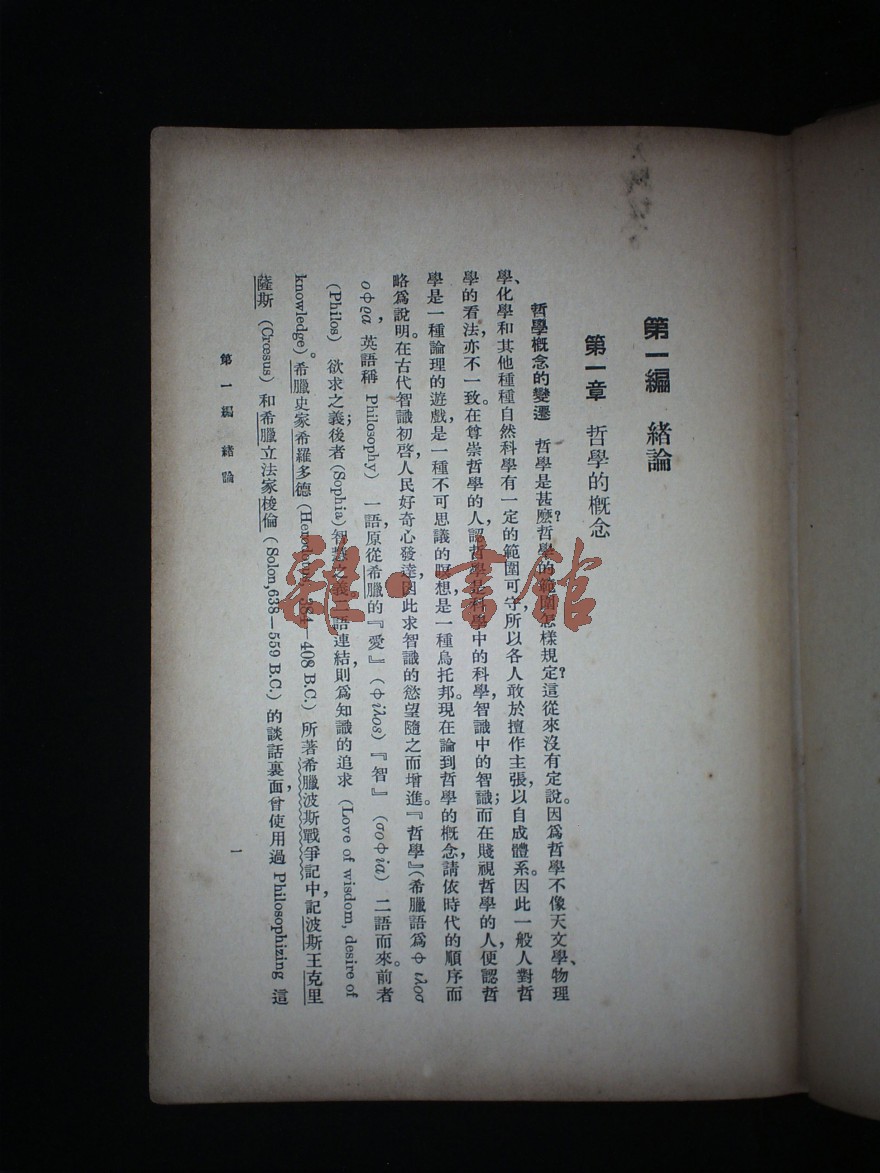 第一編　緒論
第一章　哲學的概念
哲學概念的變遷　哲學是甚麽？哲學的範圍怎樣規定？這從來沒有定說。因爲哲學不像天文學、物理
學、化學和其他種種自然科學有一定的範圍可守，所以各人敢於擅作主張，以自成體系。因此一般人對哲
學的看法亦不一致。在尊崇哲學的人，認哲學是科學中的科學，智識中的智識；而在賤視哲學的人，便認哲
學是一種論理的遊戲，是一種不可思議的瞑想，是一種烏托邦。現在論到哲學的概念，請依時代的順序而
略爲說明。在古代智識初啓，人民好奇心發達，因此求智識的慾望隨之而增進。『哲學』（希臘語爲 Φιλοσ
οφρα，英語稱 Philosophy）一語，原從希臘的『愛』（Φiλos）『智』（σοφia）二語而來。前者
(Philos) 欲求之義；後者 (Sophia) 智慧之義，二語連結，則爲知識的追求 (Love of wisdom, desire of
knowledge)。希臘史家希羅多德 (Herodotus, 484—408 B.C.) 所著希臘波斯戰爭記中，記波斯王克里
薩斯 (Crœsus) 和希臘立法家梭倫 (Solon, 638—559 B.C.) 的談話裏面，曾使用過 Philosophizing 這
第一編　緒論
一
雜·書館